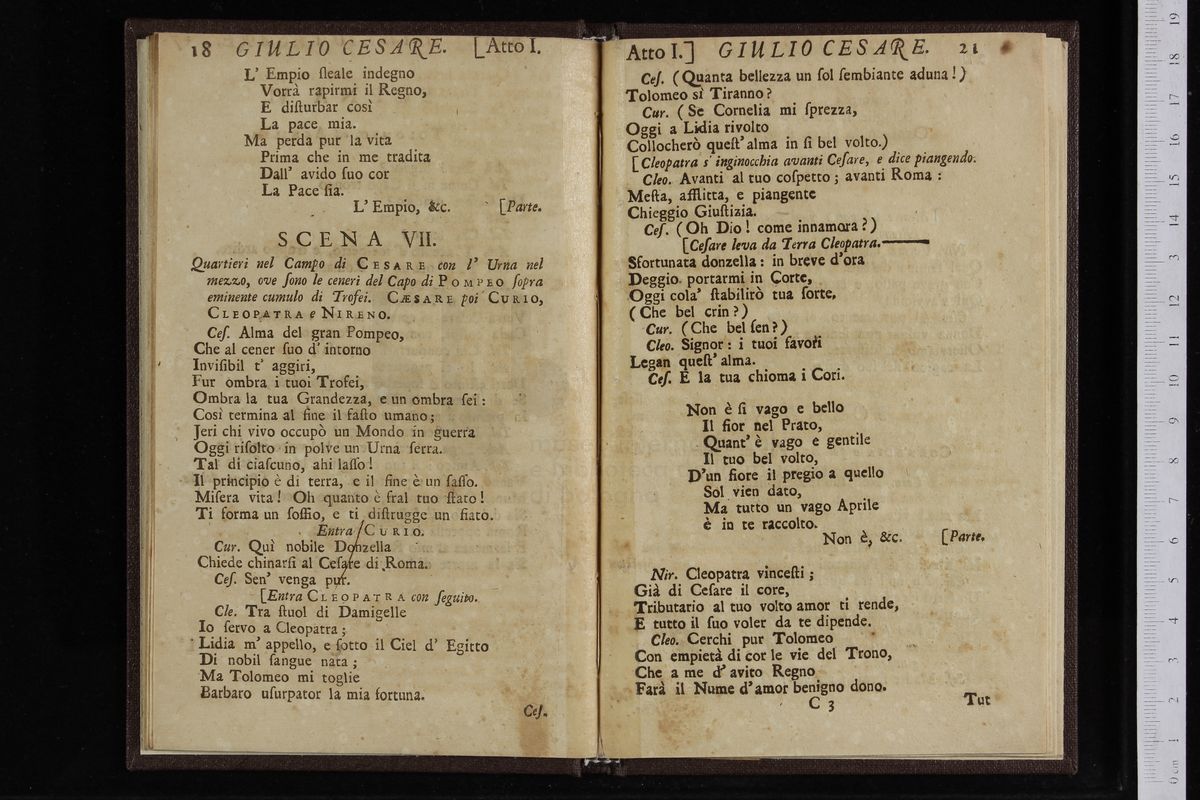 18 GIULIO CESARE. [Atto I.
L' Empio ſleale indegno
Vorrà rapirmi il Regno,
E diſturbar così
La pace mia.
Ma perda pur la vita
Prima che in me tradita
Dall' avido ſuo cor
La Pace ſia.
L' Empio, &c. [Parte.
SCENA VII.
Quartieri nel Campo di CESARE con l' Urna nel
mezzo, ove ſono le ceneri del Capo di POMPEO ſopra
eminente cumulo di Trofei. CÆSARE poi CURIO,
CLEOPATRA e NIRENO.
Ceſ. Alma del gran Pompeo,
Che al cener ſuo d' intorno
Inviſibil t' aggiri,
Fur ombra i tuoi Trofei,
Ombra la tua Grandezza, e un ombra ſei :
Così termina al fine il faſto umano;
Jeri chi vivo occupò un Mondo in guerra
Oggi riſolto in polve un Urna ſerra.
Tal di ciaſcuno, ahi laſſo!
Il principio è di terra, e il fine è un ſaſſo.
Miſera vita! Oh quanto è fral tuo ſtato!
Ti forma un ſoffio, e ti diſtrugge un fiato.
Entra CURIO.
Cur. Quì nobile Donzella
Chiede chinarſi al Ceſare di Roma.
Ceſ. Sen' venga pur.
[Entra CLEOPATRA con ſeguito.
Cle. Tra ſtuol di Damigelle
Io ſervo a Cleopatra;
Lidia m' appello, e ſotto il Ciel d' Egitto
Di nobil ſangue nata;
Ma Tolomeo mi toglie
Barbaro uſurpator la mia fortuna.
Ceſ.
Atto I.] GIULIO CESARE. 21
Ceſ. (Quanta bellezza un ſol ſembiante aduna!)
Tolomeo sì Tiranno?
Cur. (Se Cornelia mi ſprezza,
Oggi a Lidia rivolto
Collocherò queſt' alma in ſi bel volto.)
[Cleopatra s' inginocchia avanti Ceſare, e dice piangendo.
Cleo. Avanti al tuo coſpetto; avanti Roma :
Meſta, afflitta, e piangente
Chieggio Giuſtizia.
Ceſ. (Oh Dio! come innamora?)
[Ceſare leva da Terra Cleopatra.
Sfortunata donzella: in breve d'ora
Deggio portarmi in Corte,
Oggi cola' ſtabilirò tua ſorte.
(Che bel crin?)
Cur. (Che bel ſen?)
Cleo. Signor: i tuoi favori
Legan queſt' alma.
Ceſ. E la tua chioma i Cori.
Non è ſi vago e bello
Il fior nel Prato,
Quant' è vago e gentile
Il tuo bel volto,
D'un fiore il pregio a quello
Sol vien dato,
Ma tutto un vago Aprile
è in te raccolto.
Non è, &c. [Parte.
Nir. Cleopatra vinceſti;
Già di Ceſare il core,
Tributario al tuo volto amor ti rende,
E tutto il ſuo voler da te dipende.
Cleo. Cerchi pur Tolomeo
Con empietà di cor le vie del Trono,
Che a me d' avito Regno
Farà il Nume d'amor benigno dono.
C 3 Tut
0 cm 1 2 3 4 5 6 7 8 9 10 11 12 13 14 15 16 17 18 19